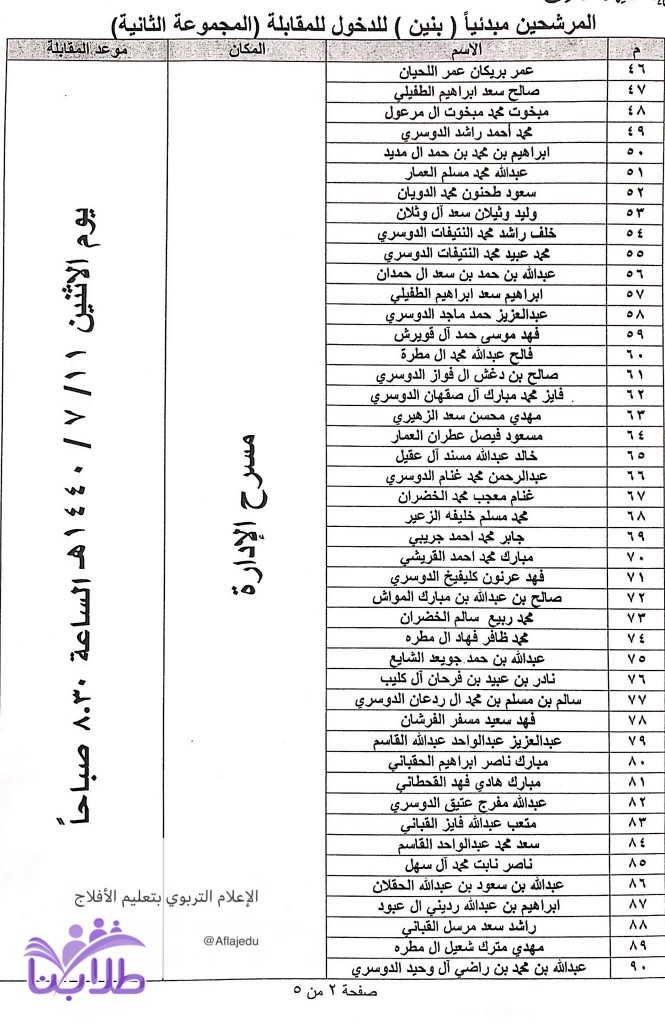 المرشحين مبدئياً ( بنين ) للدخول للمقابلة (المجموعة الثانية)
م الاسم المكان موعد المقابلة
٤٦ عمر بريكان عمر اللحيان
٤٧ صالح سعد ابراهيم الطفيلي
٤٨ مبخوت محمد مبخوت ال مرعول
٤٩ محمد أحمد راشد الدوسري
٥٠ ابراهيم بن محمد بن حمد ال مديد
٥١ عبدالله محمد مسلم العمار
٥٢ سعود طحنون محمد الدويان
٥٣ وليد وثيلان سعد آل وثلان
٥٤ خلف راشد محمد النتيفات الدوسري
٥٥ محمد عبيد محمد النتيفات الدوسري
٥٦ عبدالله بن حمد بن سعد ال حمدان
٥٧ ابراهيم سعد ابراهيم الطفيلي
٥٨ عبدالعزيز حمد ماجد الدوسري
٥٩ فهد موسى حمد آل قويرش
٦٠ فالح عبدالله محمد ال مطرة
٦١ صالح بن دغش ال فواز الدوسري
٦٢ فايز محمد مبارك آل صقهان الدوسري
٦٣ مهدي محسن سعد الزهيري
٦٤ مسعود فيصل عطران العمار
٦٥ خالد عبدالله مسند آل عقيل
٦٦ عبدالرحمن محمد غنام الدوسري
٦٧ غنام معجب محمد الخضران
٦٨ محمد مسلم خليفه الزعير
٦٩ جابر محمد احمد جريبي
٧٠ مبارك محمد احمد القريشي
٧١ فهد عرنون كليفيخ الدوسري
٧٢ صالح بن عبدالله بن مبارك المواش
٧٣ محمد ربيع سالم الخضران
٧٤ محمد ظافر فهاد ال مطره
٧٥ عبدالله بن حمد جويعد الشايع
٧٦ نادر بن عبيد بن فرحان آل كليب
٧٧ سالم بن مسلم بن محمد ال ردعان الدوسري
٧٨ فهد سعيد مسفر الفرشان
٧٩ عبدالعزيز عبدالواحد عبدالله القاسم
٨٠ مبارك ناصر ابراهيم الحقباني
٨١ مبارك هادي فهد القحطاني
٨٢ عبدالله مفرج عتيق الدوسري
٨٣ متعب عبدالله فايز القباني
٨٤ سعد محمد عبدالواحد القاسم
٨٥ ناصر نابت محمد آل سهل
٨٦ عبدالله بن سعود بن عبدالله الحقلان
٨٧ ابراهيم بن عبدالله رديني ال عبود
٨٨ راشد سعد مرسل القباني
٨٩ مهدي مترك شعيل ال مطره
٩٠ عبدالله بن محمد بن راضي آل وحيد الدوسري
مسرح الإدارة
يوم الاثنين ١١ / ٧ / ١٤٤٠هـ الساعة ٨.٣٠ صباحاً
الإعلام التربوي بتعليم الأفلاج
@Aflajedu
طلابنا
صفحة ٢ من ٥